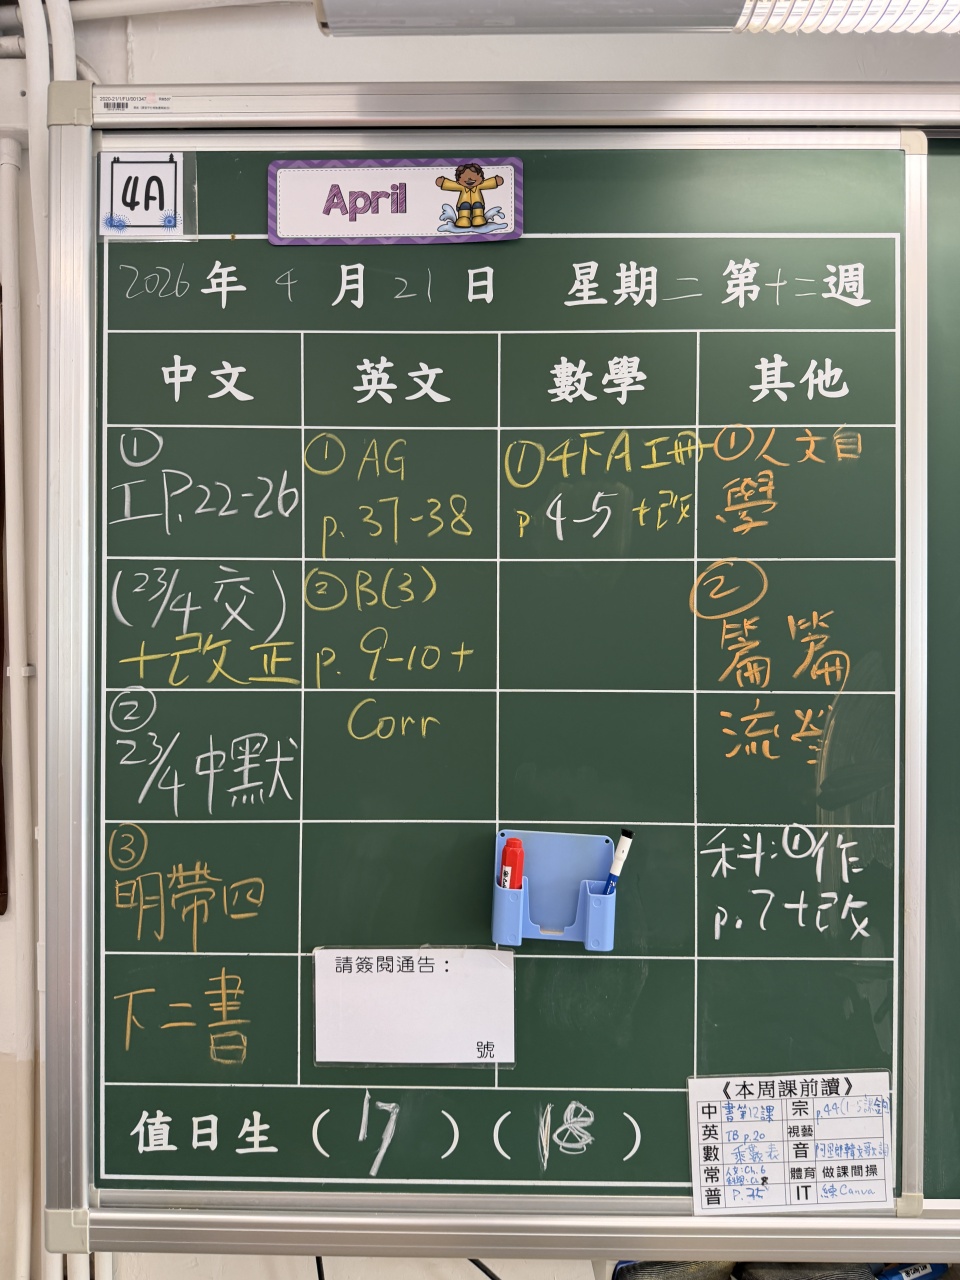 2020-21/1/FU/001347
4A
April
2026年4月21日 星期二 第十二週
中文 英文 數學 其他
①
工P.22-26
(23/4交)
+改正
②
23/4中默
③
明帶四
下二書
①AG
p.37-38
②B(3)
p.9-10+
Corr
①4下A工冊
p4-5+改
①人文自
學
②
篇篇
流螢
科:①作
p.7+改
請簽閱通告：
號
值日生(17)(18)
《本周課前讀》
中 書第12課
宗 p.44(1-5
英 TB p.20
視藝
數 乘數表
音
常 人文:Ch.6
科學:Ch.8
體育 做課間操
普 P.35
IT 練Canva